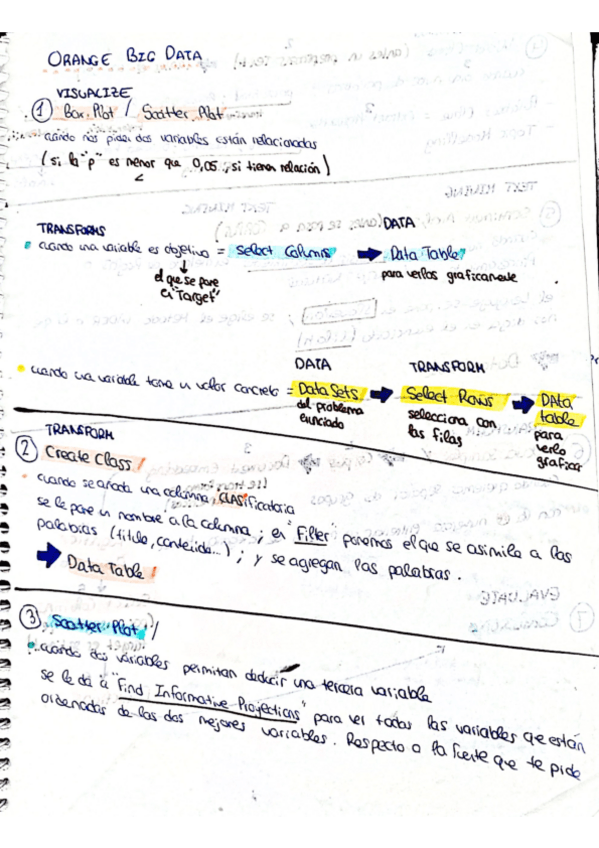 ORANGE BIG DATA
VISUALIZE
① Box Plot / Scatter Plot
cuando nos piden dos variables están relacionadas
(si la "p" es menor que 0,05, si tienen relación)
<
TRANSFORMS
DATA
cuando una variable es objetivo = Select Columns → Data Table
el que se pone en "Target"
para verlos graficamente
DATA
TRANSFORM
cuando una variable toma un valor concreto = Data Sets → Select Rows → DAta table
del problema enunciado
selecciona con las filas
para verlo graficar
TRANSFORM
② Create Class /
cuando se añada una columna CLASificatoria
se le pone un nombre a la columna ; en "Filter" ponemos el que se asimila a las
palabras (titulo, contenido...) ; y se agregan las palabras.
→ Data Table /
③ Scatter Plot /
cuando dos variables permitan deducir una tercera variable
se le da a "Find Informative Projections" para ver todas las variables que están
ordenadas de las dos mejores variables. Respecto a la fuerte que te pide
EVALUATE
TEXT MINING